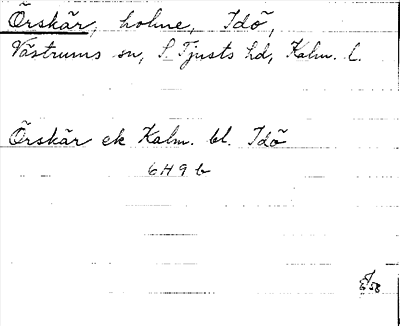 Örskär, holme, Idö,
Västrums sn, S Tjusts hd, Kalm. l.
Örskär ek Kalm. bl. Idö
6H9b